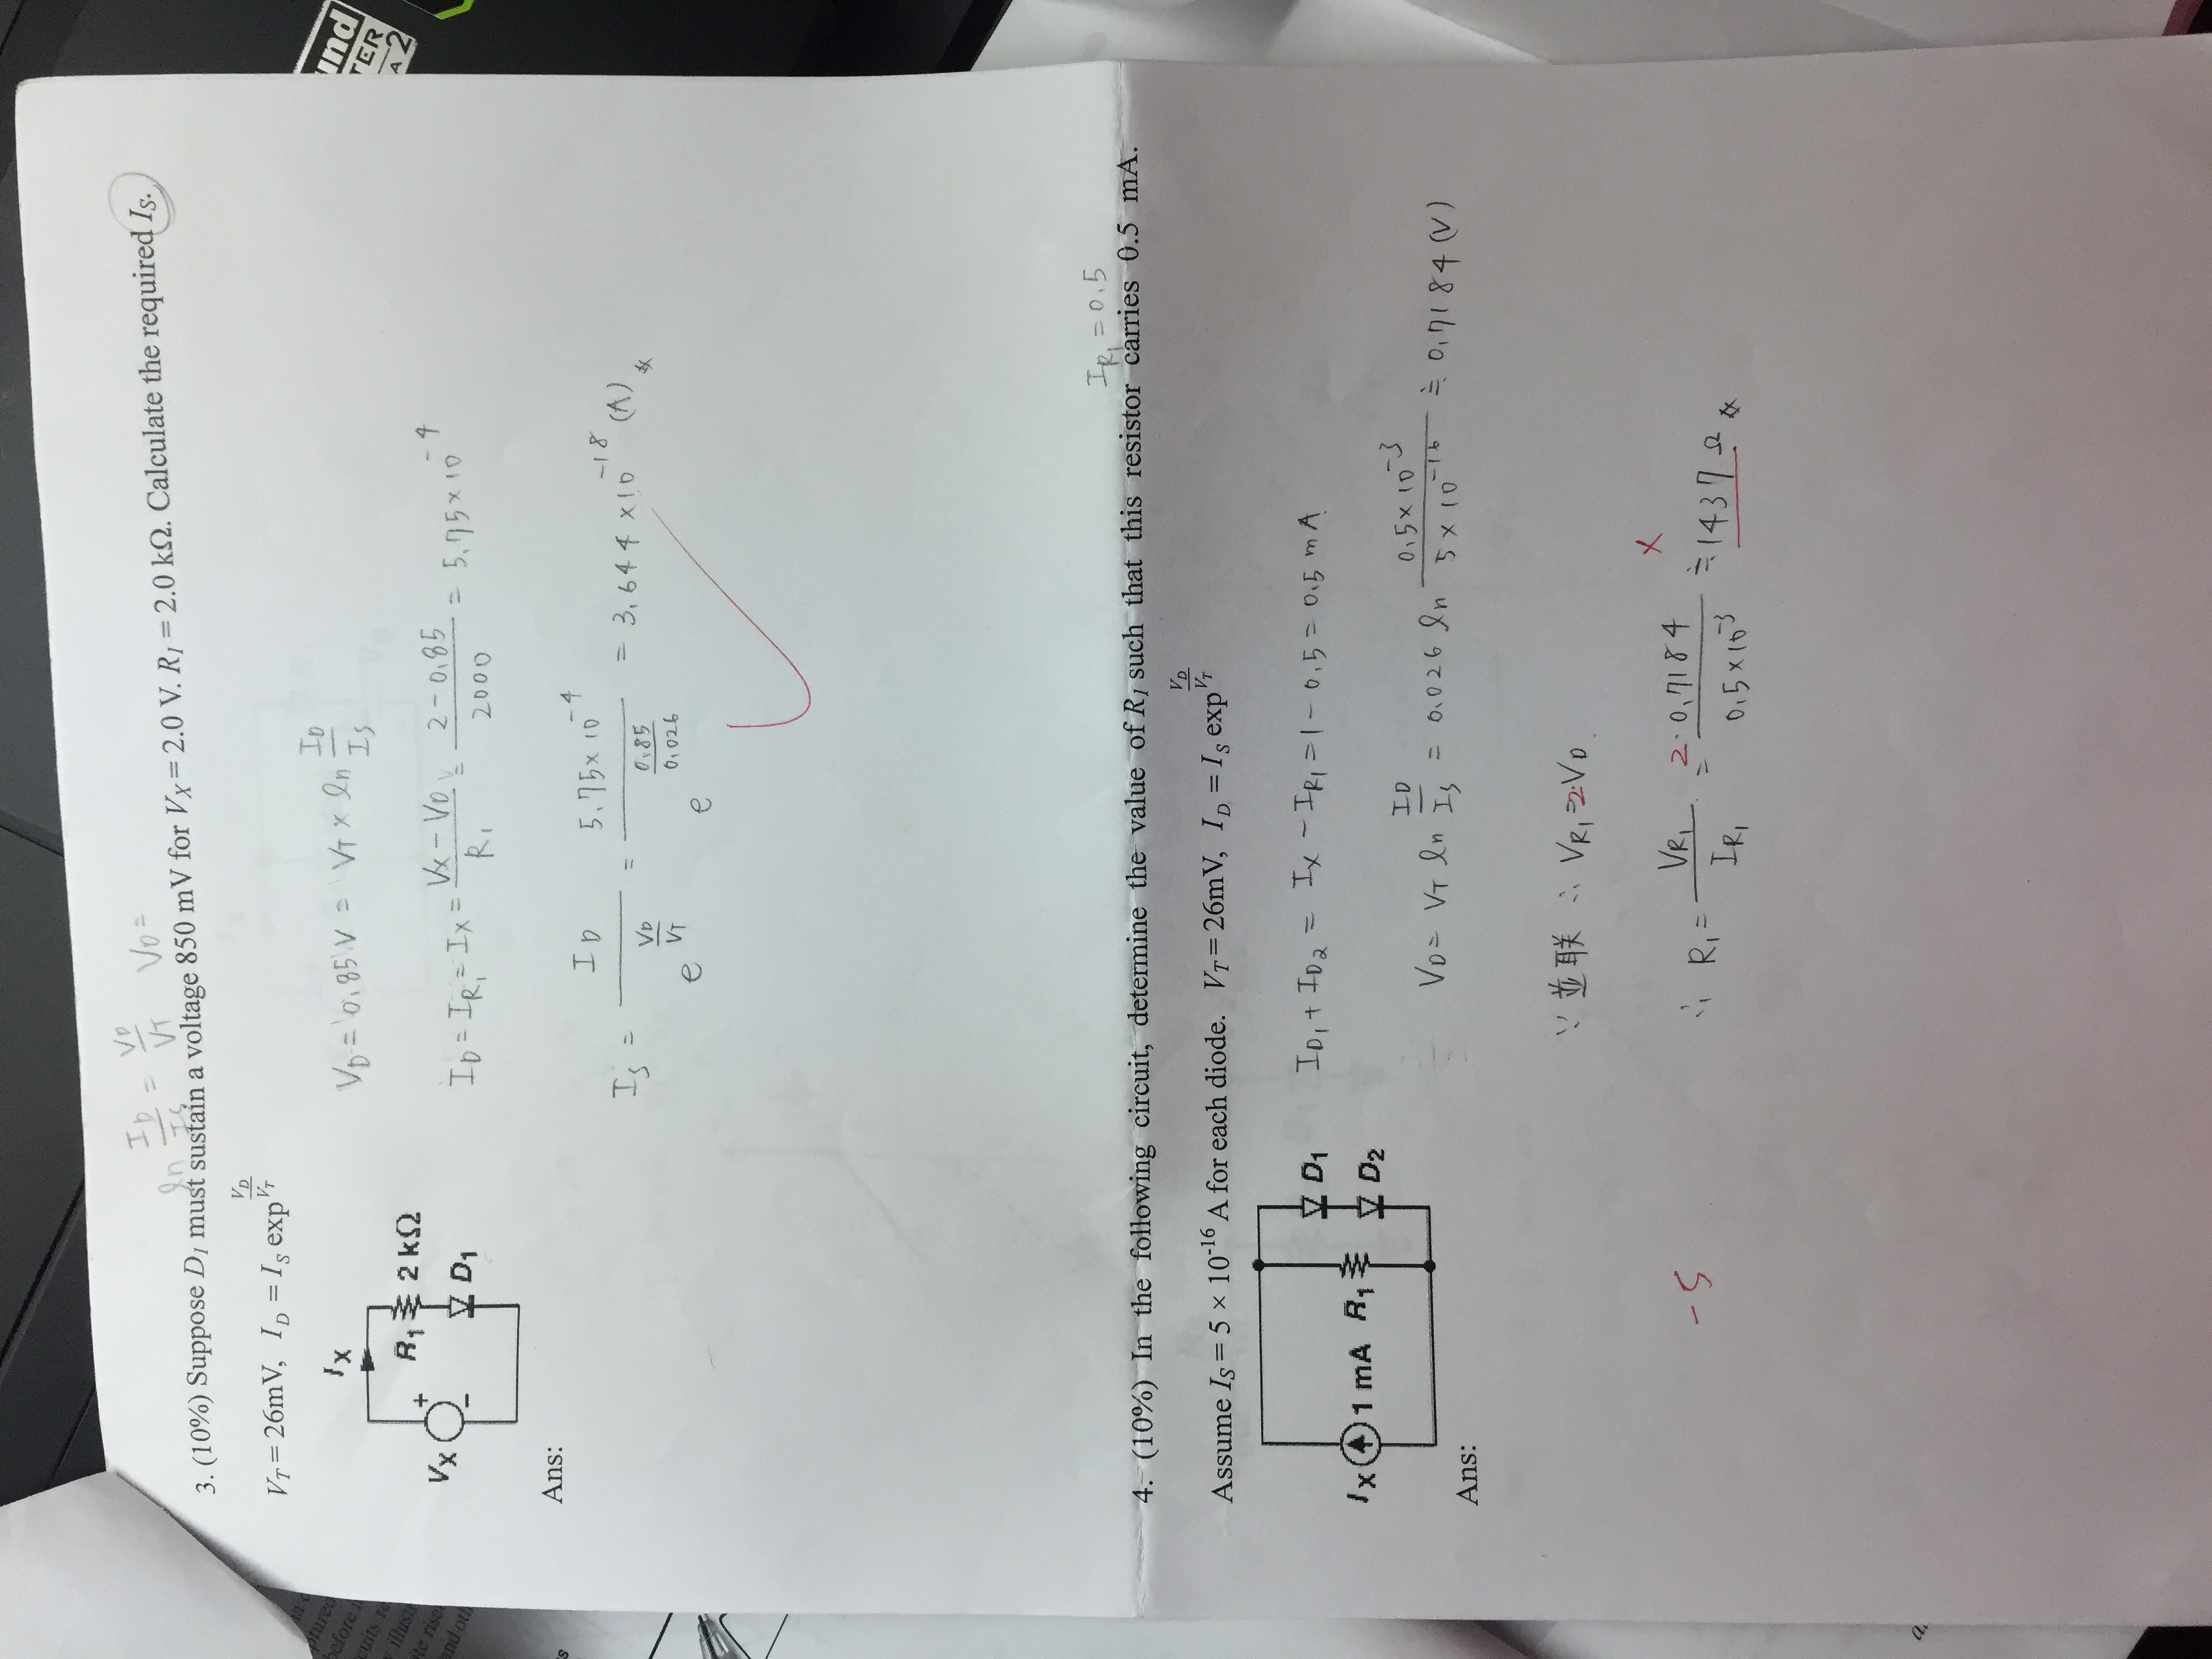 ln I_D/I_S = V_D/V_T V_D =
3. (10%) Suppose D_1 must sustain a voltage 850 mV for V_X = 2.0 V. R_1 = 2.0 kΩ. Calculate the required I_S.
V_T = 26mV, I_D = I_S exp^(V_D/V_T)
I_X
R_1 2 kΩ
V_X + −
D_1
V_D = 0.85 V = V_T × ln I_D/I_S
I_D = I_R1 = I_X = (V_X − V_D)/R_1 = (2 − 0.85)/2000 = 5.75 × 10^-4
Ans:
I_S = I_D/e^(V_D/V_T) = 5.75 × 10^-4/e^(0.85/0.026) = 3.644 × 10^-18 (A)
I_R1 = 0.5
4. (10%) In the following circuit, determine the value of R_1 such that this resistor carries 0.5 mA.
Assume I_S = 5 × 10^-16 A for each diode. V_T = 26mV, I_D = I_S exp^(V_D/V_T)
D_1
I_X 1 mA R_1
D_2
I_D1 + I_D2 = I_X − I_R1 = 1 − 0.5 = 0.5 mA
V_D = V_T ln I_D/I_S = 0.026 ln (0.5 × 10^-3)/(5 × 10^-16) ≒ 0.7184 (V)
Ans:
∵ 並联 ∴ V_R1 = 2·V_D
-5
∴ R_1 = V_R1/I_R1 = (2·0.7184)/(0.5 × 10^-3) ≒ 1437 Ω
×
und
TER
A 2
ptured
before i
cuits re
illust
ite rise
and oth